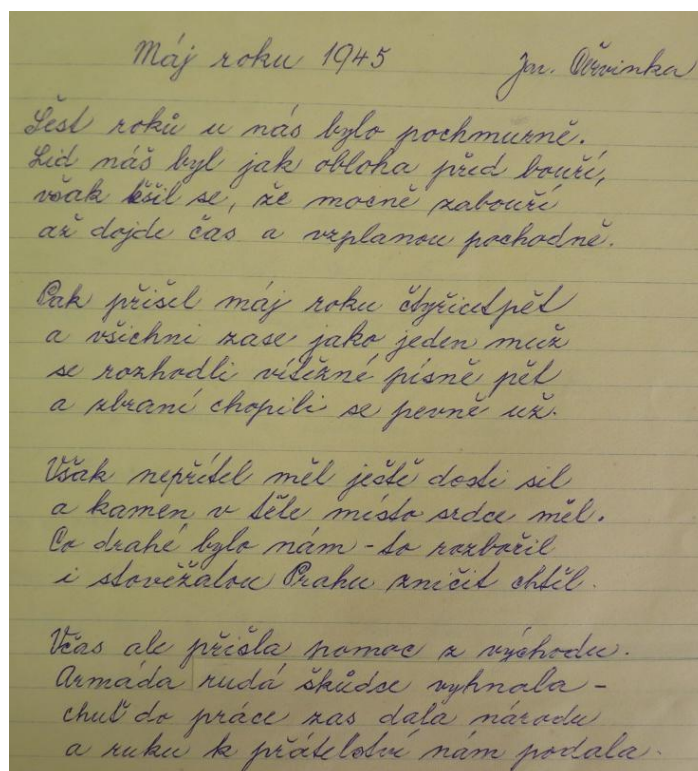 Máj roku 1945 Jar. Červinka
Šest roků u nás bylo pochmurně.
Lid náš byl jak obloha před bouří,
však těšil se, že mocně zabouří
až dojde čas a vzplanou pochodně.
Pak přišel máj roku čtyřicetpět
a všichni zase jako jeden muž
se rozhodli vítězné písně pět
a zbraní chopili se pevně už.
Však nepřítel měl ještě dosti sil
a kamen v těle místo srdce měl.
Co drahé bylo nám - to rozbořil
i stověžatou Prahu zničit chtěl.
Včas ale přišla pomoc z východu.
Armáda rudá škůdce vyhnala -
chuť do práce zas dala národu
a ruku k přátelství nám podala.